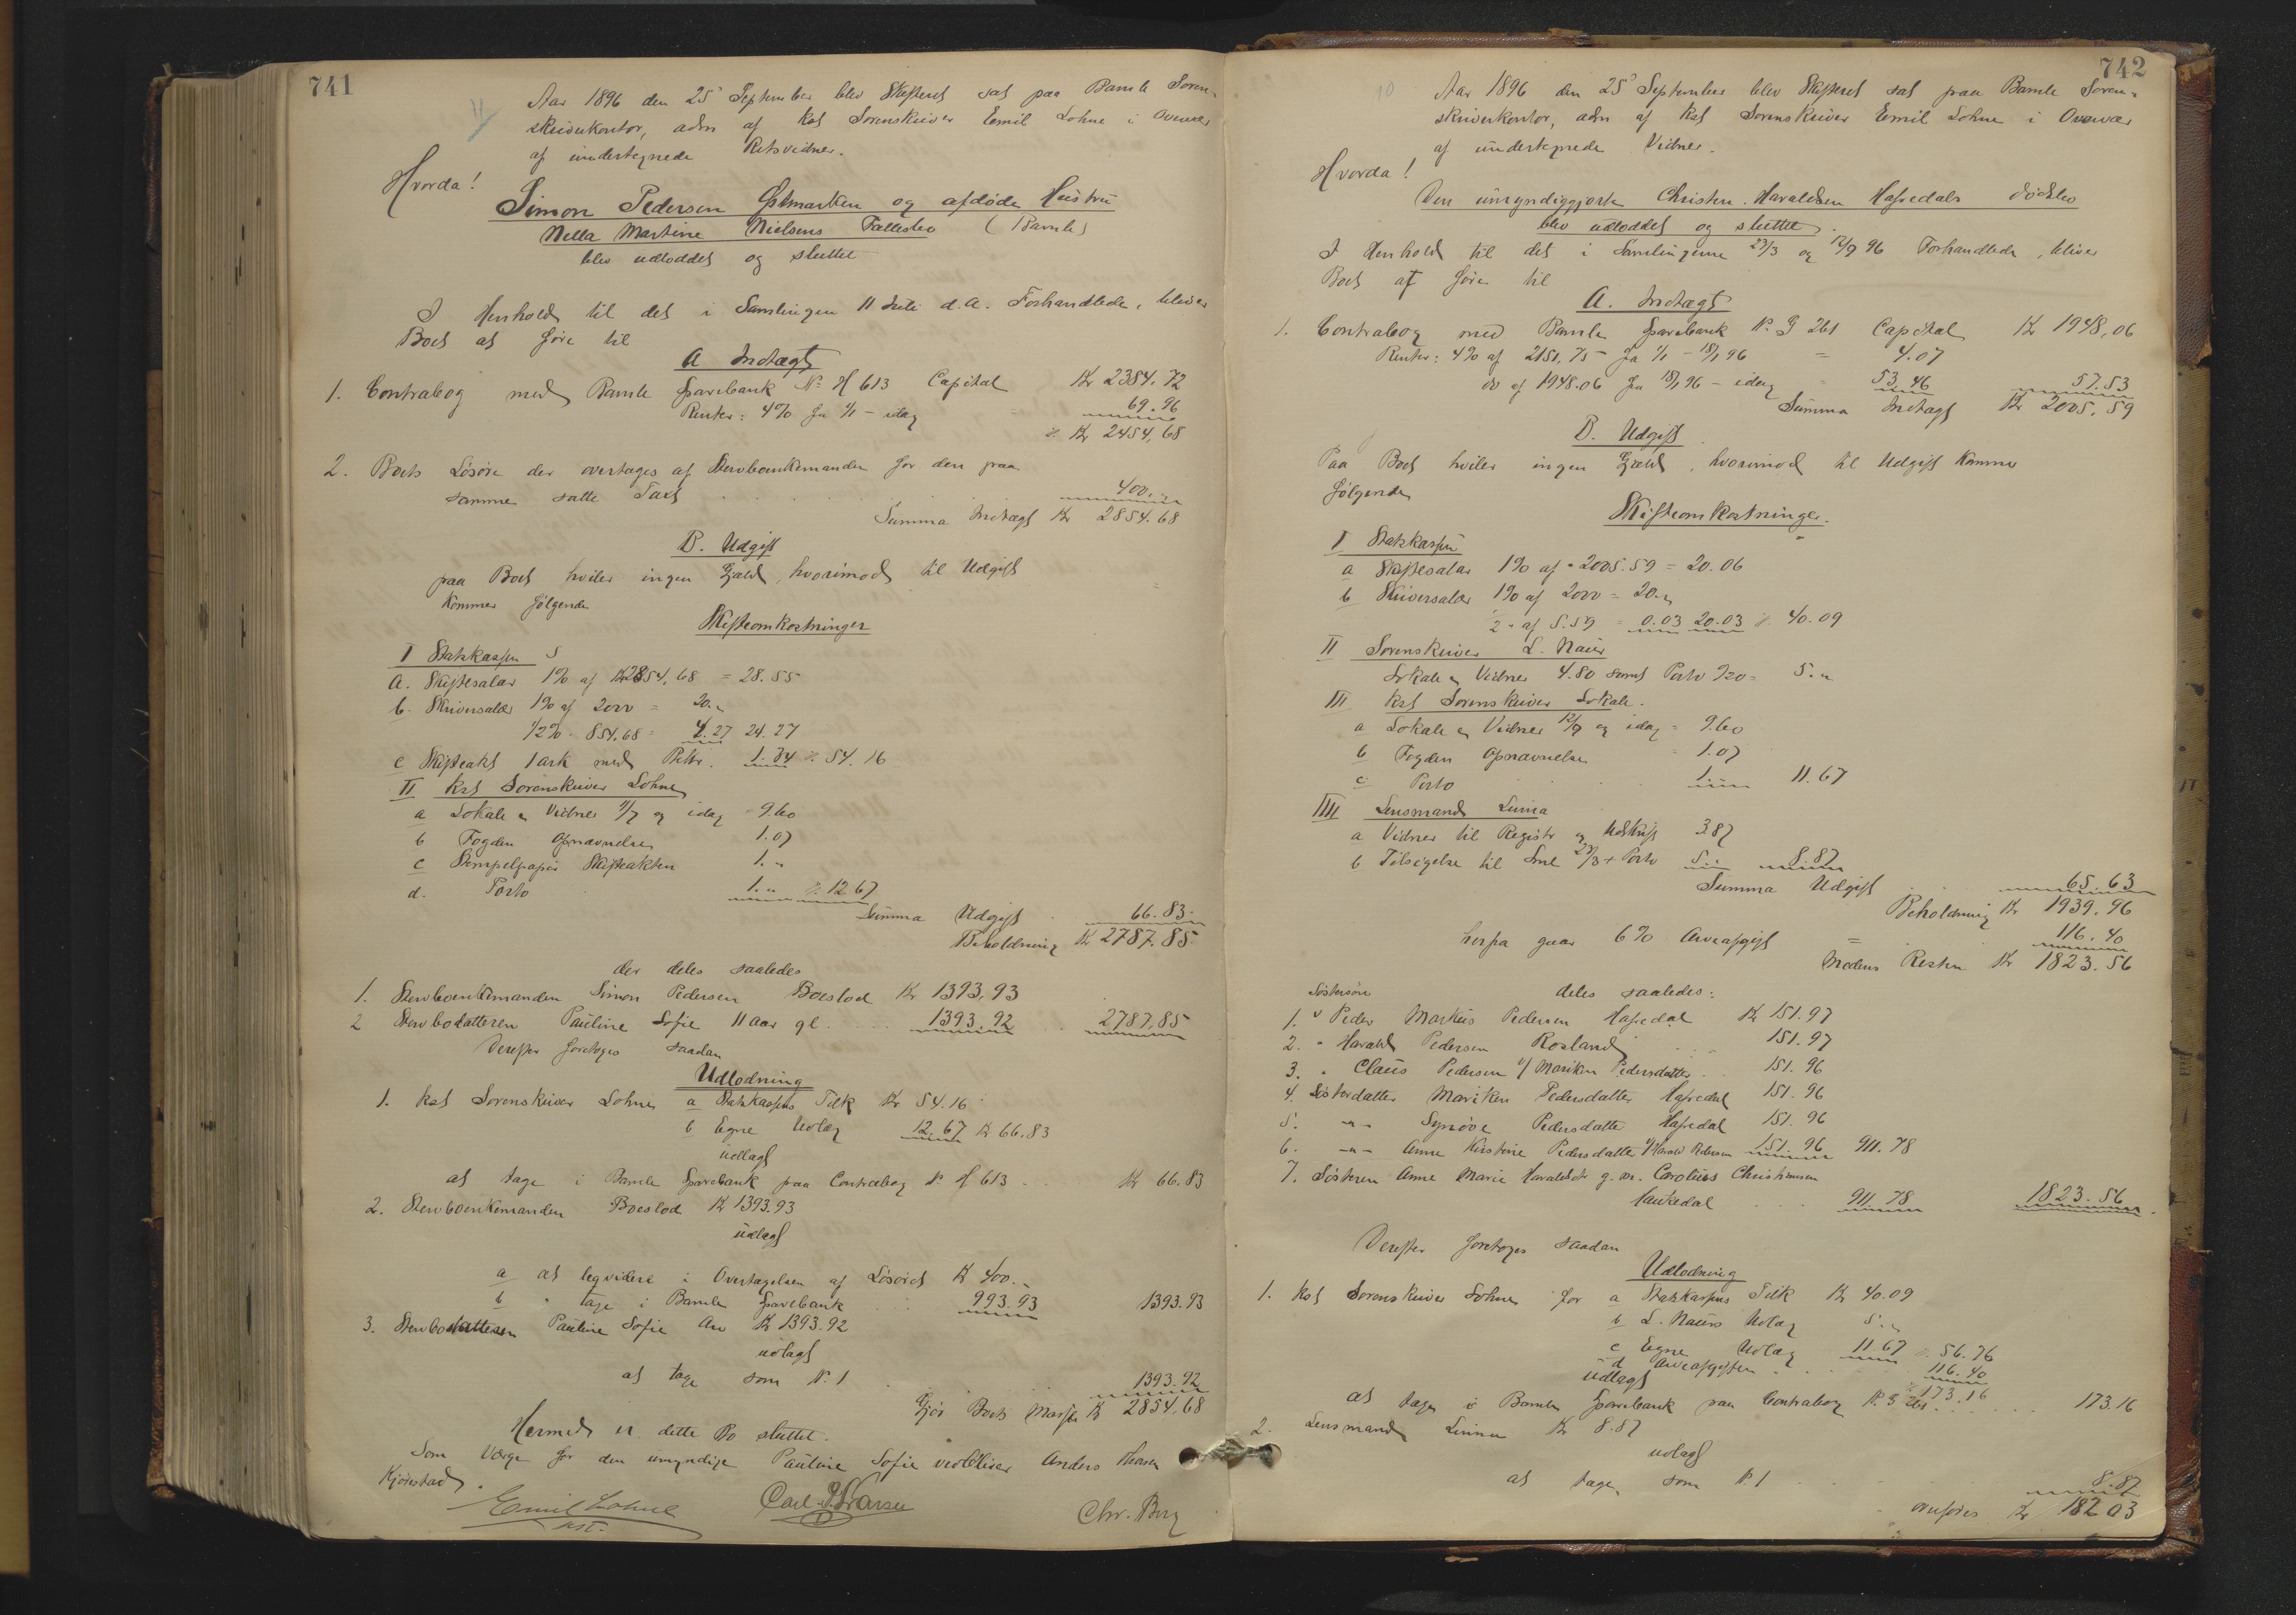 741
11
Aar 1896 den 25' September blev Skifteret sat paa Bamle Soren-
skriverkontor, adm af kst Sorenskriver Emil Lohne i Overvær
af undertegnede Retsvidner.
Hvorda!
Simon Pedersen Østmarken og afdøde Hustru
Nella Martine Nielsens Fællesbo (Bamle)
blev udloddet og sluttet
I Henhold til det i Samlingen 11 Juli d.A. Forhandlede, bliver
Boet at føre til
A Indtægt
1. Contrabog med Bamle Sparebank No H 613 Capital Kr 2384.72
Renter: 4% fra 1/1 - idag 69.96
Kr 2454,68
2. Boets Løsøre der overtages af Stervboenkemanden for den paa
samme satte Taxt 400.-
Summa Indtægt Kr 2854.68
B. Udgift
paa Boet hviler ingen Gjæld, hvorimod til Udgift
kommer følgende
Skifteomkostninger
I Statskassen
a. Skiftesalær 1% af Kr 2854,68 = 28.55
b. Skriversalær 1% af 2000 = 20.-
1/2% - 854.68 = 4.27 24.27
c Skifteakt 1 ark med Rekv. 1.34 54.16
II kst Sorenskriver Lohne
a Lokale & Vidner 11/7 og idag = 9.60
b Fogden Opnævnelse 1.07
c Stempelpapir Skifteakten 1.-
d. Porto 1.- 12.67
Summa Udgift 66.83
Beholdning Kr 2787.85
der deles saaledes
1. Stervboenkemanden Simon Pedersen Boeslod Kr 1393,93
2 Stervbodatteren Pauline Sofie 11 aar gl. 1393.92 2787,85
Derefter foretoges saadan
Udlodning
1. kst Sorenskriver Lohne a Statskassens Tilk Kr 54.16
b Egne Udlæg 12.67 Kr 66.83
udlagt
at tage i Bamle Sparebank paa Contrabog No H 613 Kr 66.83
2. Stervboenkemanden Boeslod Kr 1393.93
udlagt
a at leqvidere i Overtagelsen af Løsøret Kr 400.-
b " tage i Bamle Sparebank 993.93 1393.93
3. Stervbodatteren Pauline Sofie Arv Kr 1393.92
udlagt
at tage som No 1 1393.92
Gjør Boets Masse Kr 2854.68
Hermed er dette Bo sluttet.
Som Værge for den umyndige Pauline Sofie vedbliver Anders
Kjørestad.
Emil Lohne
kst.
Carl Larsen
Chr. Berg
742
10
Aar 1896 den 25' September blev Skifteret sat paa Bamle Soren-
skriverkontor, adm af kst Sorenskriver Emil Lohne i Overvær
af undertegnede Vidner.
Hvorda!
Den umyndiggjorte Christen Haraldsen Hafredals Dødsbo
blev udloddet og sluttet
I Henhold til det i Samlingerne 23/3 og 12/9 96 Forhandlede, bliver
Boet at føre til
A. Indtægt
1. Contrabog med Bamle Sparebank No G 261 Capital Kr 1948,06
Renter: 4% af 2151,75 fra 1/1 - 18/1 96 = 4.07
do af 1948.06 fra 18/1 96 - idag 53.46 57.53
Summa Indtægt Kr 2005,59
B. Udgift
Paa Boet hviler ingen Gjæld, hvorimod til Udgift kommer
følgende
Skifteomkostninger.
I Statskassen
a Skiftesalær 1% af 2005.59 = 20.06
b Skriversalær 1% af 2000 = 20.-
1/2 " af 5.59 = 0.03 20.03 40.09
II Sorenskriver L. Naur
Lokale & Vidner 4.80 samt Porto 20 = 5.-
III kst Sorenskriver Lohne.
a Lokale & Vidner 12/9 og idag = 9.60
b Fogden Opnævnelse = 1.07
c Porto 1.- 11.67
IIII Lensmand Linna
a Vidner til Registr og Udskrift 3.87
b Tilsigelse til Saml 23/3 + Porto 5.- 8.87
Summa Udgift 65.63
Beholdning Kr 1939.96
herfra gaar 6% Arveafgift = 116.40
Medens Resten Kr 1823.56
deles saaledes:
Søstersøn
1. " Peder Markus Pedersen Hafredal Kr 151.97
2. " Harald Pedersen Rosland 151.97
3. " Claus Pedersen v/ Mariken Pedersdatter 151.96
4. Søsterdatter Mariken Pedersdatter Hafredal 151.96
5. -"- Synøve Pedersdatter Hafredal 151.96
6. -"- Anne Kirstine Pedersdatter v/ Harald Pedersen 151.96 911.78
7. Søsteren Anne Marie Haraldsdtr g.m. Carolius Christensen
Haukedal 911.78 1823.56
Derefter foretoges saadan
Udlodning
1. kst Sorenskriver Lohne for a Statskassens Tilk Kr 40.09
b L. Naurs Udlæg 5.-
c Egne Udlæg 11.67 56.76
d Arveafgiften 116.40
udlagt 173.16
at tage i Bamle Sparebank paa Contrabog No G 261 173.16
2. Lensmand Linna Kr 8.87
udlagt
at tage som No 1 8.87
overføres Kr 182.03